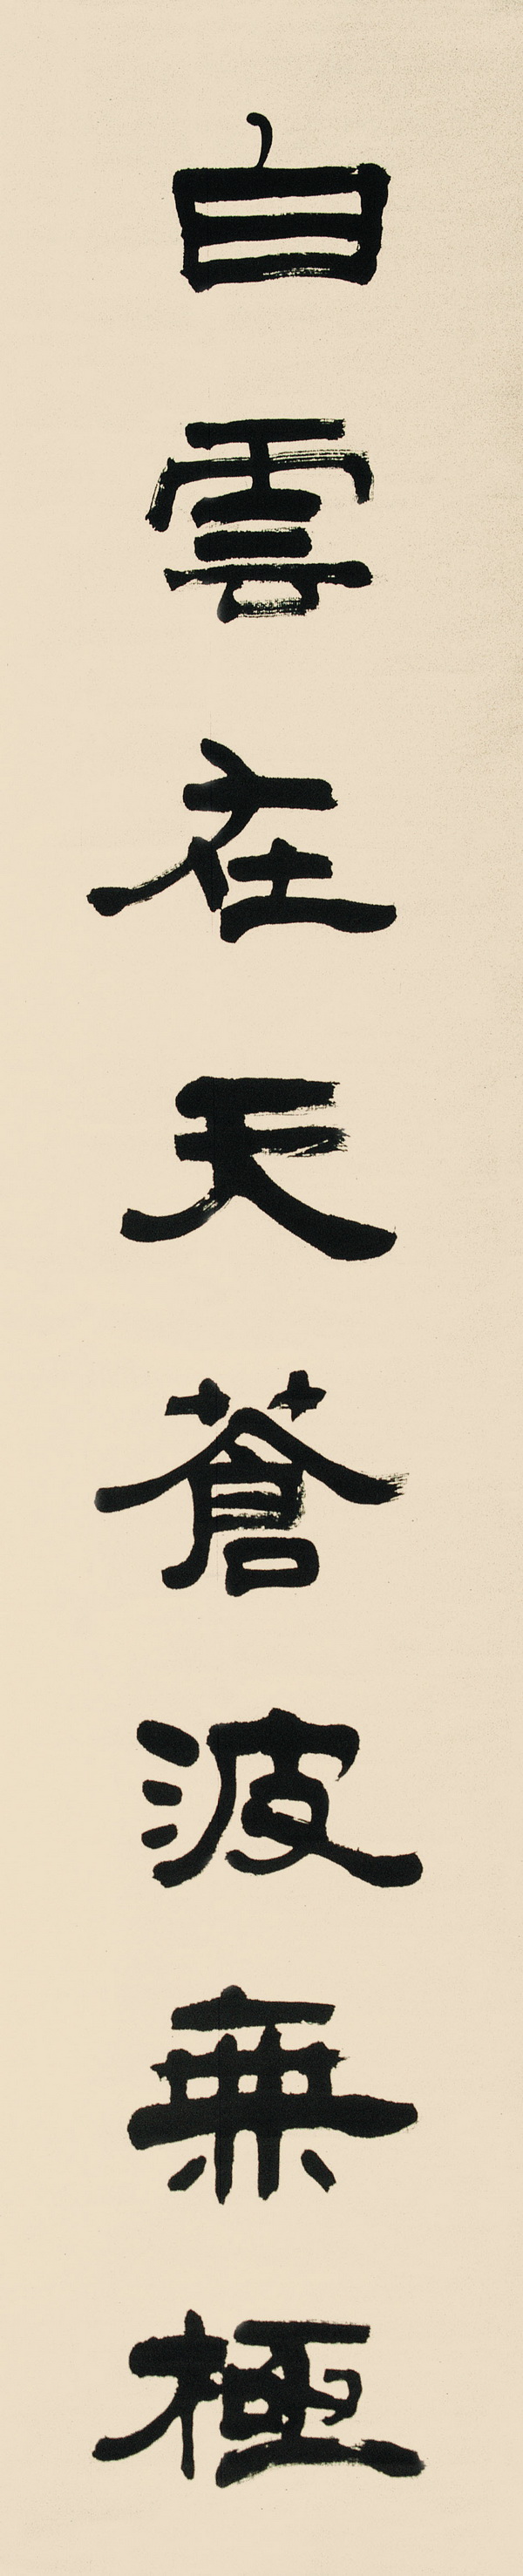 白雲在天蒼波無極